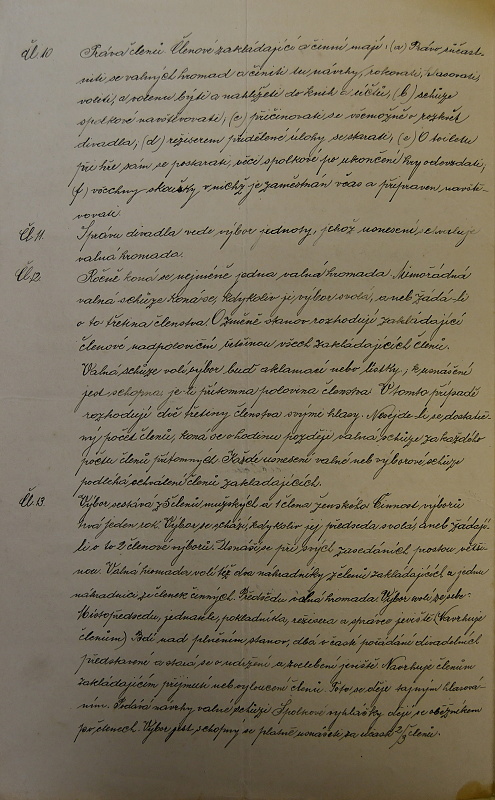 Čl. 10. Práva členů. Členové zakládající a činní mají: (a) Právo súčast-
niti se valných hromad a činiti tu návrhy, rokovati, hlasovati,
voliti, a volenu býti a nahlížeti do knih a účtů, (b) schůze
spolkové navštěvovati, (c) přičinovati se všemožně o rozkvět
divadla, (d) režiserem přidělené úlohy se starati, (e) O toiletu
při hře sám se postarati, věci spolkové po ukončení hry odevzdati,
(f) všechny skoušky v nichž je zaměstnán včas a připraven navště-
vovati.
Čl. 11. Správu divadla vede výbor jednoty, jehož usnesení se
valná hromada.
Čl. 12. Ročně koná se nejméně jedna valná hromada. Mimořádná
valná schůze koná se, kdykoliv ji výbor svolá, aneb žádá-li
o to třetina členstva. O změně stanov rozhodují zakládající
členové nadpoloviční většinou všech zakládajících členů.
Valná schůze volí výbor buď aklamací nebo lístky, k usnášení
jest schopna, je-li přítomna polovina členstva. V tomto případě
rozhodují dvě třetiny členstva svými hlasy. Nesejde-li se dostateč-
ný počet členů, koná se o hodinu později valná schůze za každého
počtu členů přítomných. Každé usnesení valné neb výborové schůze
podléhá schválení členů zakládajících.
Čl. 13. Výbor sestává z 5 členů mužských a 1 člena ženského. Činnost výboru
trvá jeden rok. Výbor se schází, kdykoliv jej předseda svolá, aneb žádají-
li o to 2 členové výboru. Usnáší se při svých zasedáních prostou větši-
nou. Valná hromada volí též dva náhradníky z členů zakládajících a jednu
náhradnici ze členek činných. Předsedu valná hromada. Výbor volí ze sebe:
Místopředsedu, jednatele, pokladníka, režisera a správce jeviště (Navrhuje
členům). Bdí nad plněním stanov, dbá včasti pořádání divadelních
představení a stará se o udržení a zvelebení jeviště. Navrhuje členům
zakládajícím přijmutí neb vyloučení členů. Toto se děje tajným hlasová-
ním. Podává návrhy valné schůzi. Spolkové vyhlášky dějí se oběžníkem
po členech. Výbor jest schopný se platně usnášeti za účasti 2/3 členů.